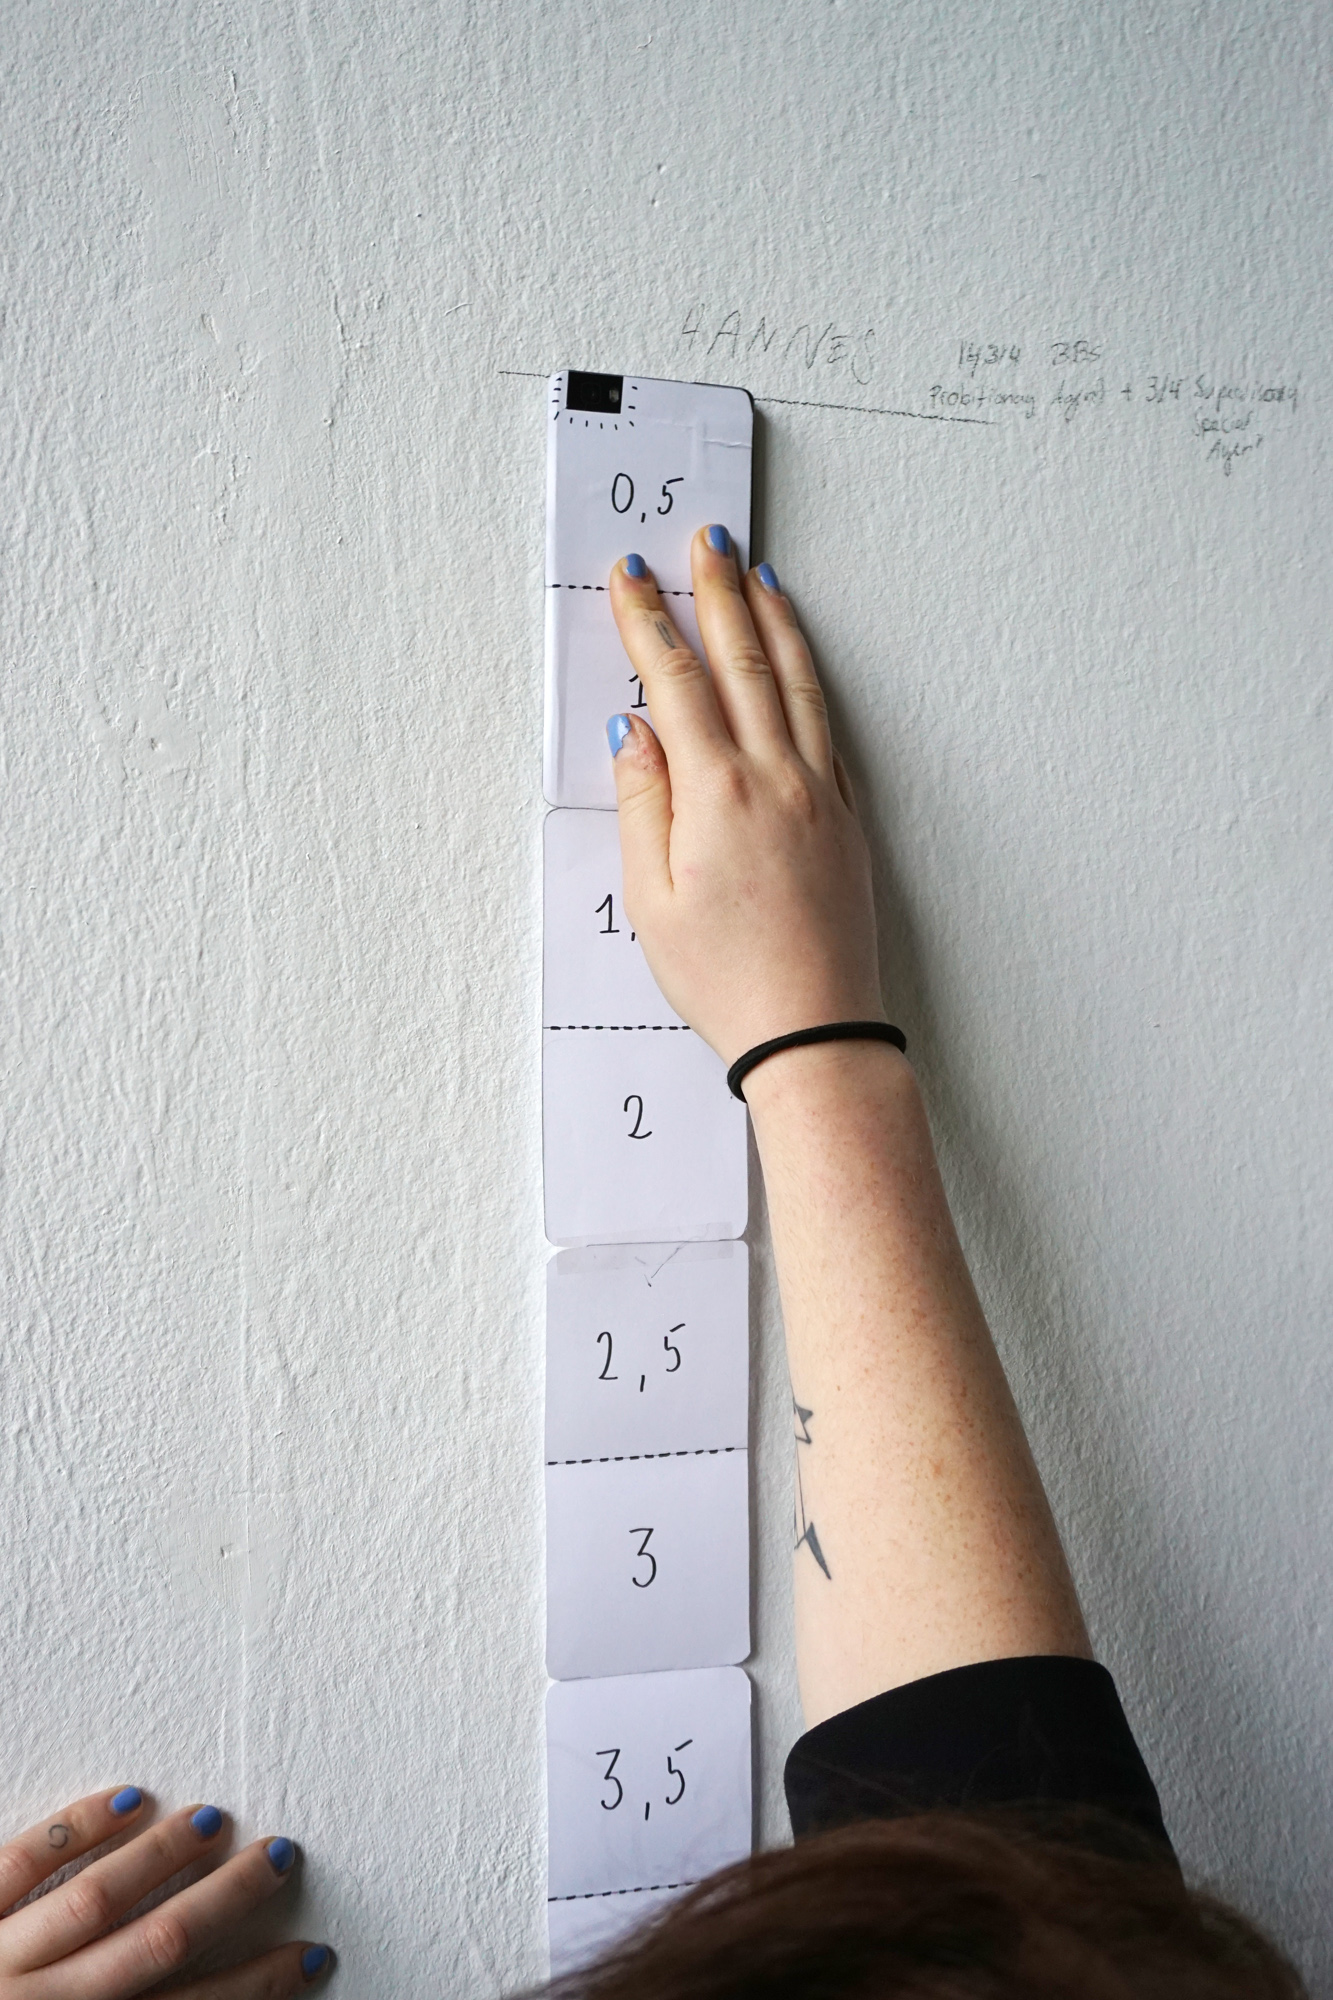 HANNES
14 3/4 BBs
Probitionary Agent + 3/4 Supervisory
Special
Agent
0,5
1
1,
2
2,5
3
3,5